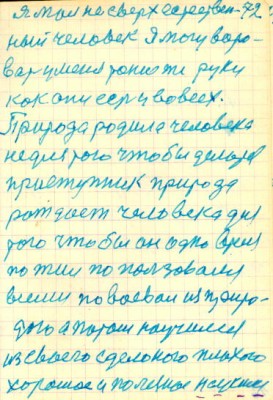 Я мол не сверхестрествен- 72
ный человек Я могу воро-
вар у меня тоже ти руки
как они есры вовсех.
Природа родила человека
не для того чтобы делатся
приеступник природа
рождает человека для
того чтобы он одно время
по жил по пользовался
всеми по воевал из приро-
дого а потом научился
из своего сделоного плохого
хорошое и полезное